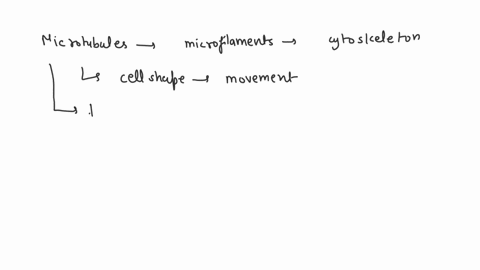 Microtubules → microfilaments → cytoskeleton
↳ cell shape → movement
↳